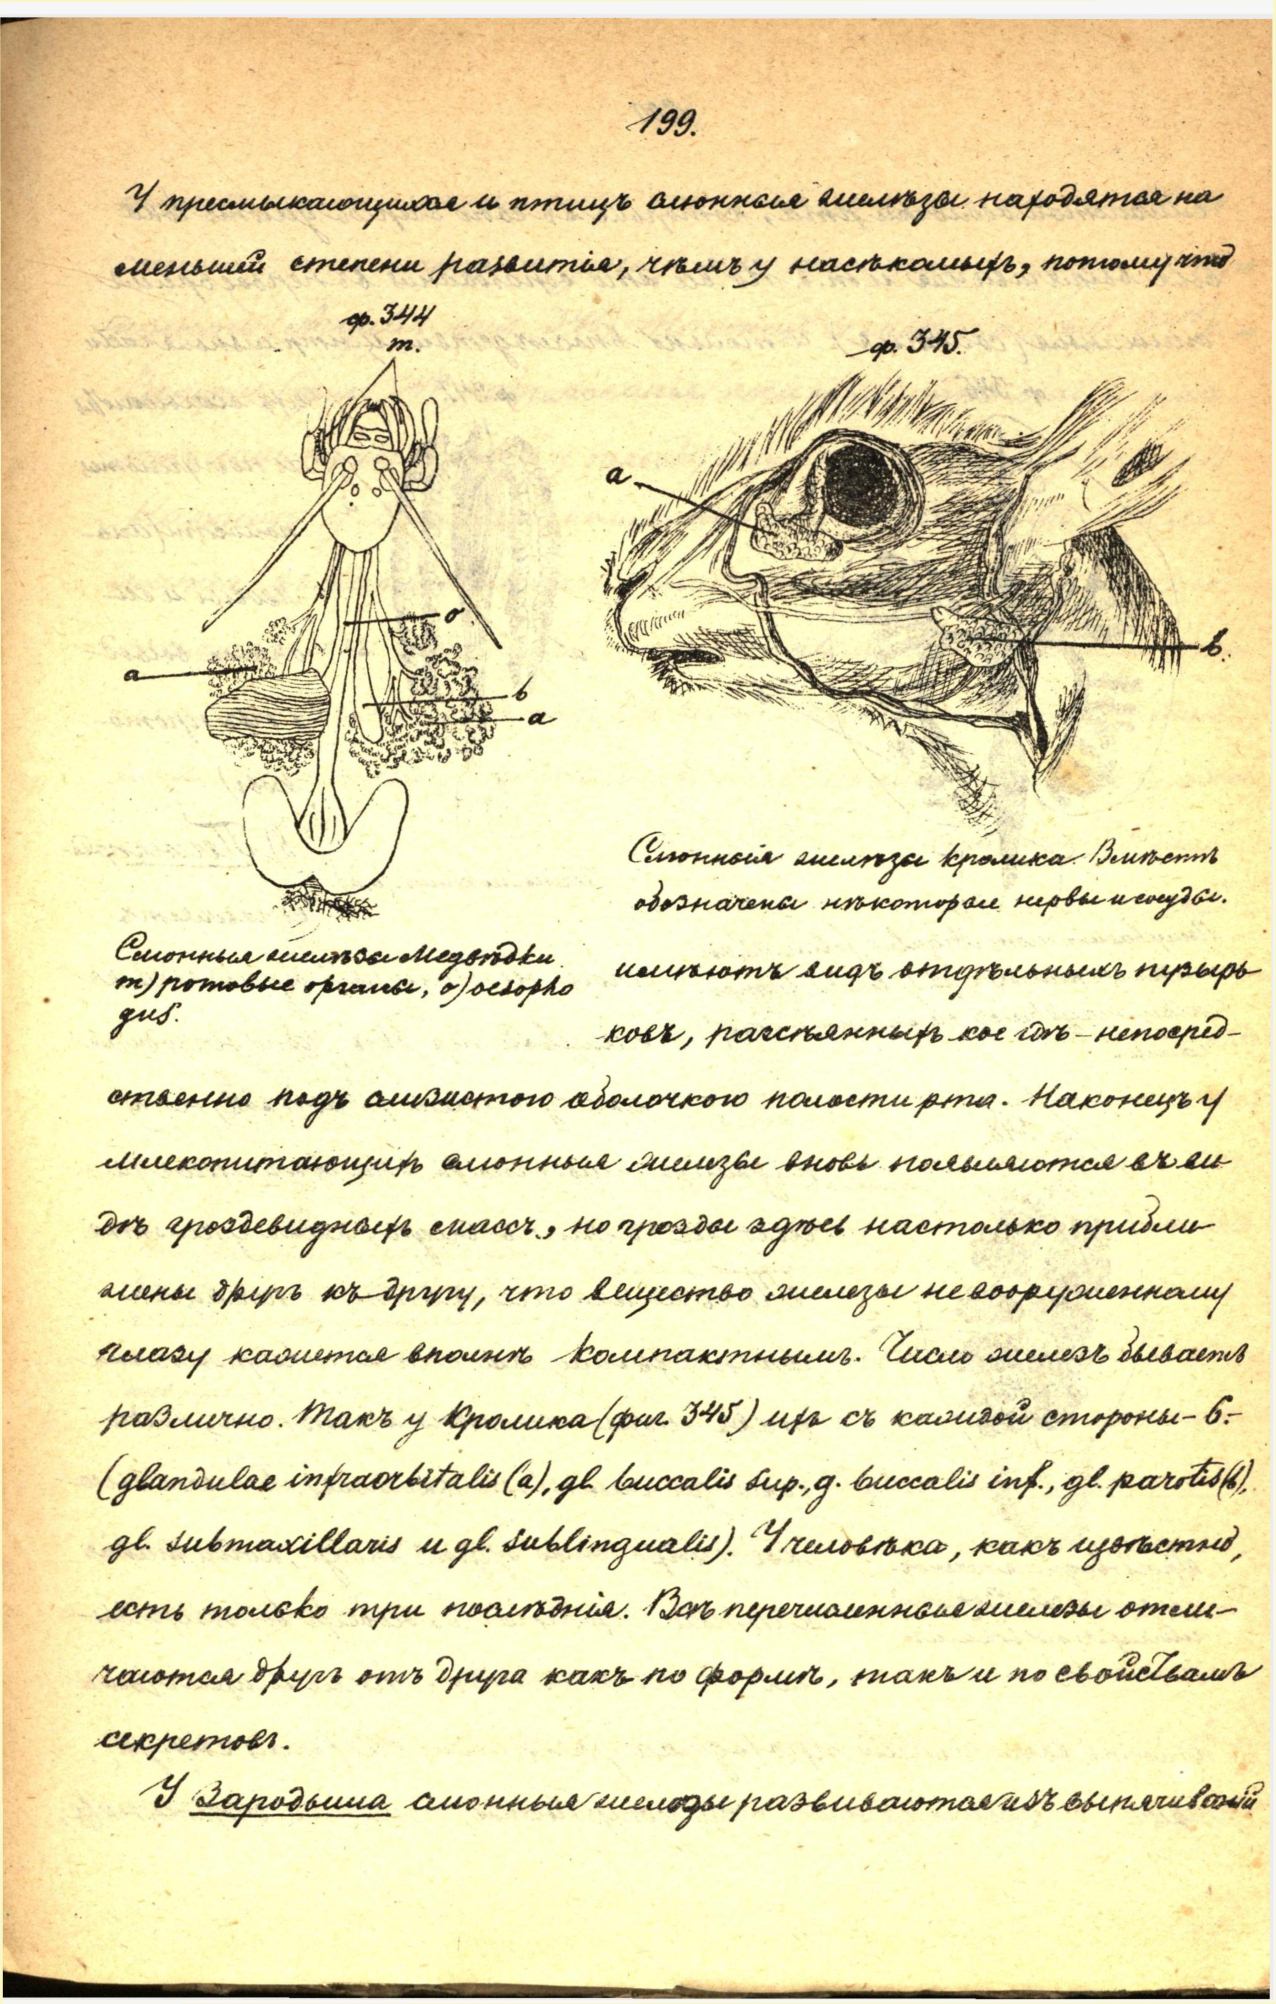 199.
У пресмыкающихся и птицъ слюнныя желѣзы находятся на
меньшей степени развитія, чѣмъ у насѣкомыхъ, потому что
ф. 344
m.
ф. 345.
a
o
a
b
a
b.
Слюнныя желѣзы кролика. Вмѣстѣ
обозначены нѣкоторые нервы и сосуды.
Слюнныя желѣзы Медвѣдки
m) ротовые органы, o) oesopha
gus.
имѣютъ видъ отдѣльныхъ пузырь
ковъ, разсѣянныхъ кое гдѣ – непосред–
ственно подъ слизистою оболочкою полости рта. Наконецъ у
млекопитающихъ слюнныя железы вновь появляются въ ви
дѣ гроздевидныхъ массъ, но грозды здѣсь настолько прибли
жены другъ къ другу, что вещество железы невооруженному
глазу кажется вполнѣ компактнымъ. Число железъ бываетъ
различно. Такъ у Кролика (фиг. 345) ихъ съ каждой стороны – 6:–
(glandulae infraorbitalis (a), gl. buccalis sup., g. buccalis inf., gl. parotis (b),
gl. submaxillaris и gl. sublingualis). У человѣка, какъ извѣстно,
есть только три послѣднія. Всѣ перечисленныя железы отли–
чаются другъ отъ друга какъ по формѣ, такъ и по свойствамъ
секретовъ.
У Зародыша слюнныя железы развиваются изъ выпячиваній